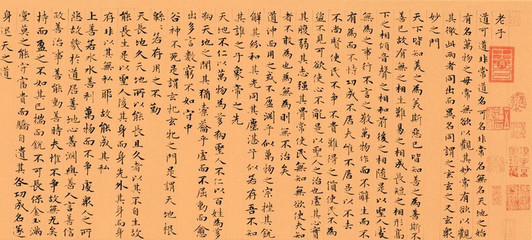 老子
道可道非常道名可名非常名無名天地之始
有名萬物之母常無欲以觀其妙常有欲以觀
其徼此兩者同出而異名同謂之玄玄之又玄衆
妙之門
天下皆知美之為美斯惡已皆知善之為善斯不
善已故有無之相生難易之相成長短之相形高
下之相傾音聲之相和前後之相隨是以聖人處
無為之事行不言之教萬物作而不辭生而不
有為而不恃功成不居夫惟不居是以不去
不尚賢使民不爭不貴難得之貨使民不為盜不
見可欲使心不亂是以聖人之治也虛其心實
其腹弱其志強其骨常使民無知無欲使夫知
者不敢為也為無為則無不治矣
道沖而用之或不盈淵乎似萬物之宗挫其銳
解其紛和其光同其塵湛乎似或存吾不知
誰之子象帝之先
天地不仁以萬物為芻狗聖人不仁以百姓為芻
狗天地之間其猶橐籥乎虛而不屈動而愈
出多言數窮不如守中
谷神不死是謂玄牝玄牝之門是謂天地根
綿綿若存用之不勤
天長地久天地所以能長且久者以其不自生故
能長生是以聖人後其身而身先外其身而身
存非以其無私耶故能成其私
上善若水水善利萬物而不爭處衆人之所
惡故幾於道居善地心善淵與善人言善信
政善治事善能動善時夫惟不爭故無尤矣
持而盈之不如其已揣而銳不可長保金玉滿
堂莫之能守富貴而驕自遺其咎功成名遂
身退天之道